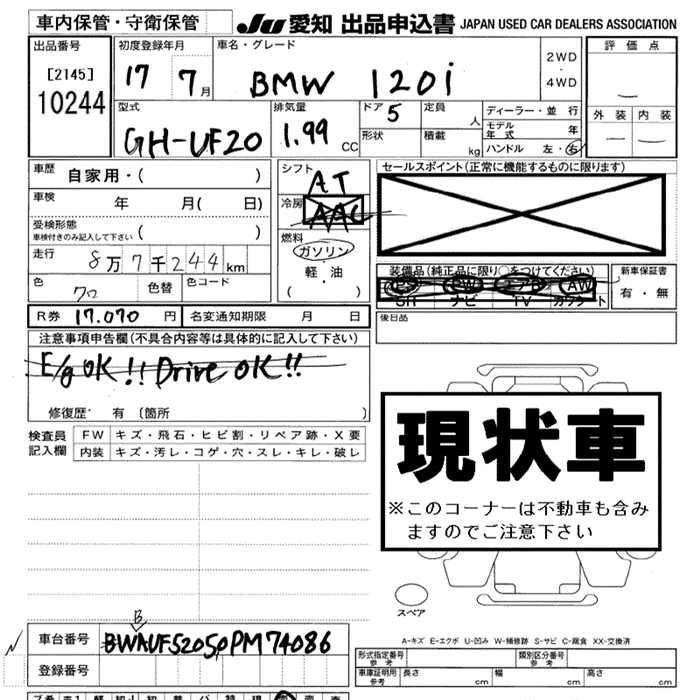 車内保管・守衛保管
JU 愛知 出品申込書 JAPAN USED CAR DEALERS ASSOCIATION
出品番号
[2145]
10244
初度登録年月
17 7月
車名・グレード
BMW 120i
2WD
・
4WD
評価点
外装 内装
型式
GH-UF20
排気量
1.99 CC
ドア 5
形状
定員 人
積載 kg
ディーラー・並行
モデル年式 年
ハンドル 左・右
車歴 自家用・( )
車検 年 月( 日)
受検形態
車検付きのみ記入して下さい ( )
走行 8万7千244km
色 クロ
色替
色コード
シフト AT
冷房 AAC
燃料
ガソリン
・
軽・油
( )
セールスポイント(正常に機能するものに限ります)
装備品(純正品に限り○をつけてください)
PS PW エアB AW
SR ナビ TV カワシート
新車保証書
有・無
後日品
R券 17.070 円
名変通知期限 月 日
注意事項申告欄(不具合内容等は具体的に記入して下さい)
E/g OK!! Drive OK!!
修復歴・ 有 〔箇所 〕
検査員
記入欄
FW キズ・飛石・ヒビ割・リペア跡・X要
内装 キズ・汚レ・コゲ・穴・スレ・キレ・破レ
現状車
※このコーナーは不動車も含み
ますのでご注意下さい
スペア
A-キズ E-エクボ U-凹み W-補修跡 S-サビ C-腐食 XX-交換済
B
車台番号 BWAUF52050PM74086
登録番号
形式指定番号
参考
類別区分番号
参考
車庫証明用
参考
長さ cm
幅 cm
高さ cm